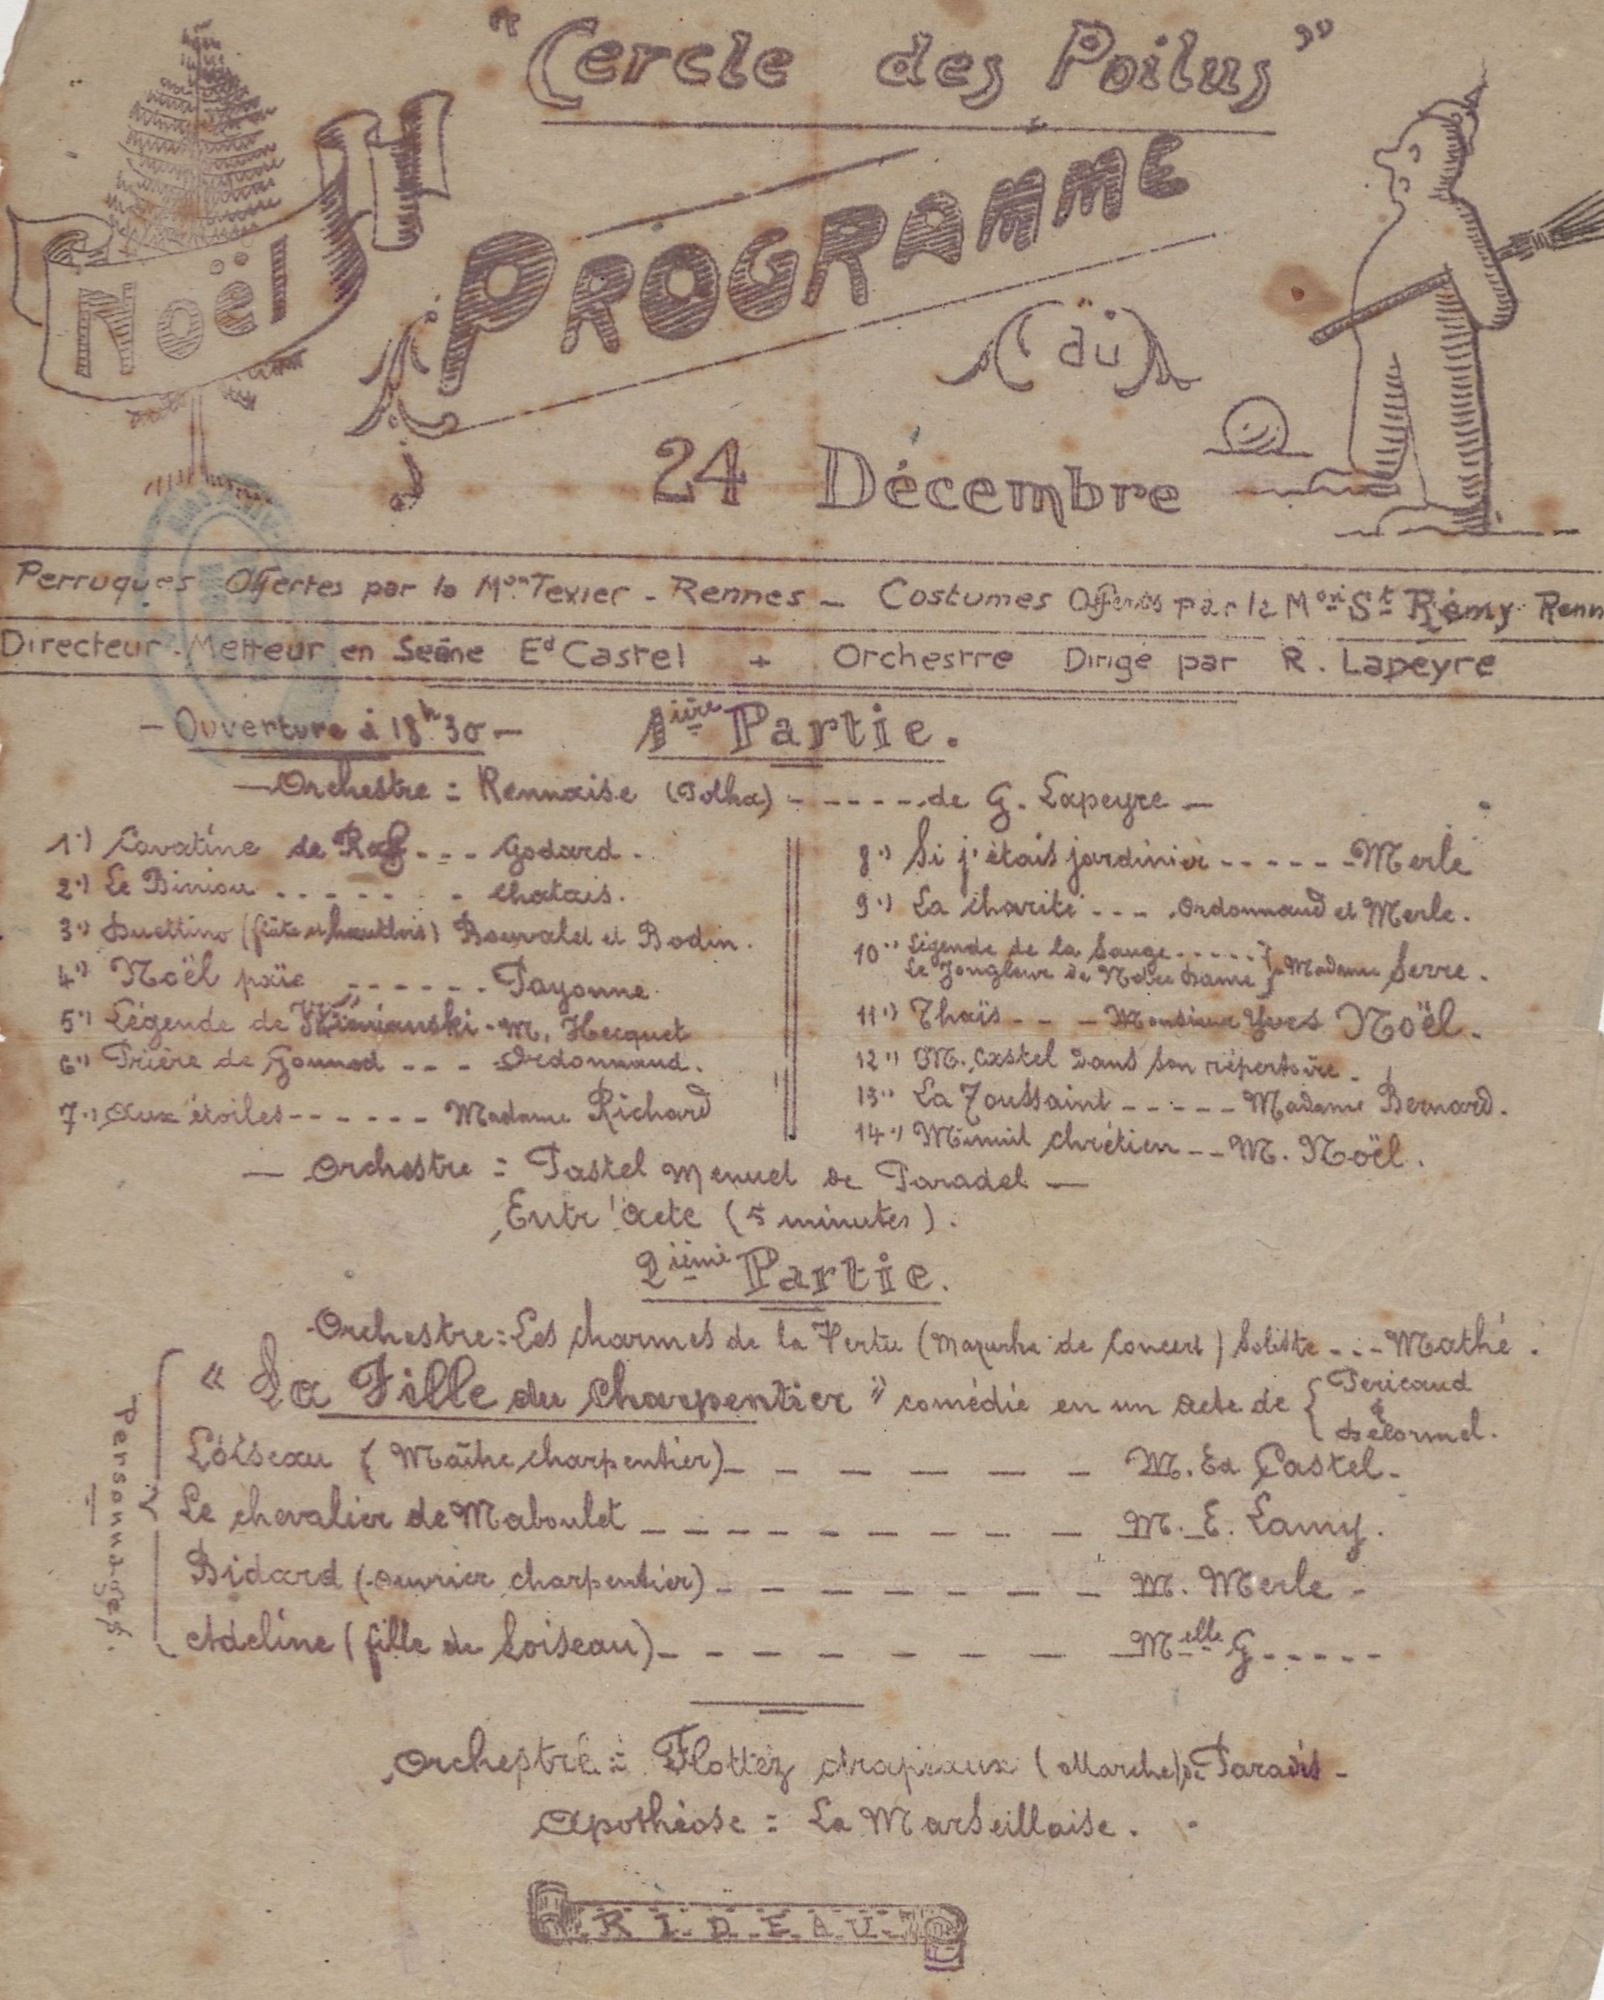 "Cercle des Poilus"
Noël
PROGRAMME
du
24 Décembre
Perruques Offertes par la Mon Texier - Rennes - Costumes Offerts par la Mon St Rémy Renn
Directeur-Metteur en Scène Ed Castel + Orchestre Dirigé par R. Lapeyre
- Ouverture à 18h 30 -
1ière Partie.
- Orchestre = Rennaise (Polka) ------ de G. Lapeyre -
1°) Cavatine de Raff --- Godard.
2°) Le Biniou ------- Chatais.
3°) Duettino (flûte et hautbois) Boewald et Bodin.
4°) Noël païe ------ Payonne
5°) Légende de Wieniawski - M. Hecquet
6°) Prière de Gounod --- Ordonnaud.
7°) Aux étoiles ------ Madame Richard
8°) Si j'étais jardinier ------ Merle
9°) La charité --- Ordonnaud et Merle.
10°) Légende de la Sauge -----
Le Jongleur de Notre Dame } Madame Serre.
11°) Thaïs --- Monsieur Yves Noël.
12°) M. Castel dans son répertoire.
13°) La Toussaint ----- Madame Bernard.
14°) Minuit chrétien -- M. Noël.
- Orchestre = Pastel Menuet de Paradel -
Entr'acte (5 minutes).
2ième Partie.
- Orchestre = Les charmes de la Vertu (Mazurka de Concert) Soliste --- Mathé.
"La Fille du Charpentier" comédie en un acte de { Péricaud
&
Delormel.
Personnages.
Loiseau (Maître charpentier) ------- M. Ed Castel.
Le chevalier de Maboulet --------- M. E. Lamy.
Bidard (ouvrier charpentier) -------- M. Merle -
Adeline (fille de Loiseau) -------- Melle G-----
Orchestre = Flottez drapeaux (Marche) de Paradis -
Apothéose = La Marseillaise.
RIDEAU